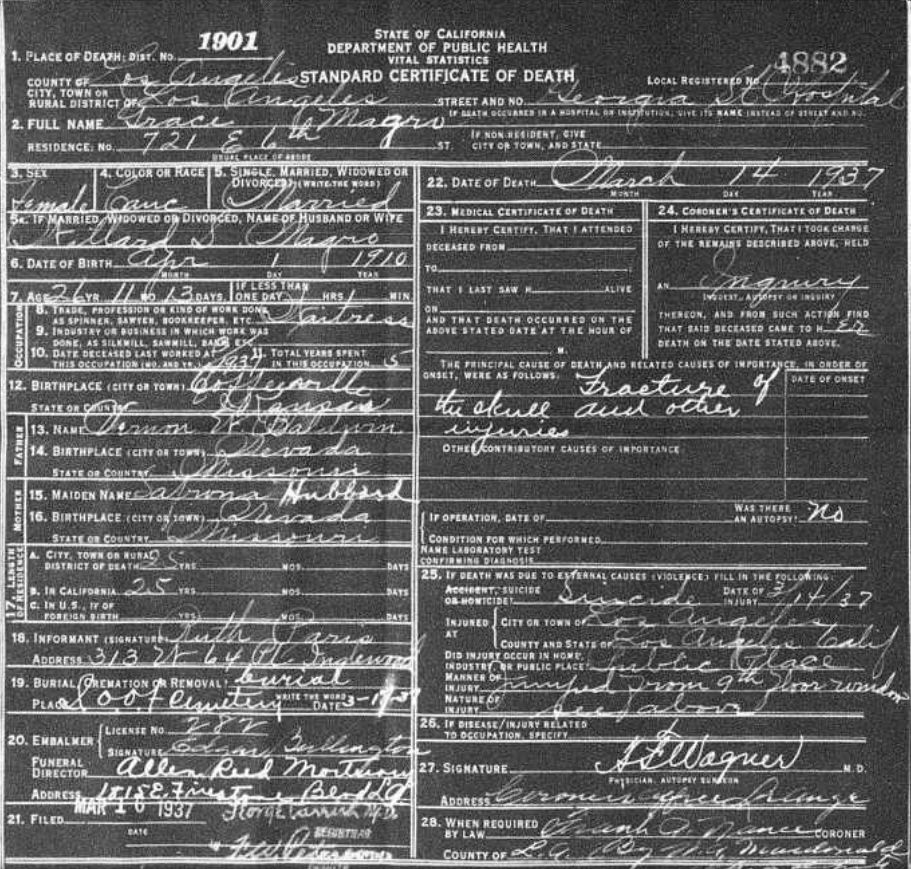 STATE OF CALIFORNIA
DEPARTMENT OF PUBLIC HEALTH
VITAL STATISTICS
STANDARD CERTIFICATE OF DEATH
1. PLACE OF DEATH: DIST. NO. 1901
LOCAL REGISTERED NO. 4882
COUNTY OF Los Angeles
CITY, TOWN OR
RURAL DISTRICT OF Los Angeles STREET AND NO. Georgia St Hospital
IF DEATH OCCURRED IN A HOSPITAL OR INSTITUTION, GIVE ITS NAME INSTEAD OF STREET AND NO.
2. FULL NAME Grace Magro
RESIDENCE: No. 721 E 6th ST.
USUAL PLACE OF ABODE
IF NON-RESIDENT, GIVE
CITY OR TOWN, AND STATE
3. SEX Female
4. COLOR OR RACE Cauc
5. SINGLE, MARRIED, WIDOWED OR
DIVORCED? (WRITE THE WORD) Married
5A. IF MARRIED, WIDOWED OR DIVORCED, NAME OF HUSBAND OR WIFE
Magro
6. DATE OF BIRTH Apr 1 1910
MONTH DAY YEAR
7. AGE 26 YR 11 MO 13 DAYS. IF LESS THAN
ONE DAY HRS MIN.
OCCUPATION
8. TRADE, PROFESSION OR KIND OF WORK DONE
AS SPINNER, SAWYER, BOOKKEEPER, ETC. Waitress
9. INDUSTRY OR BUSINESS IN WHICH WORK WAS
DONE, AS SILKMILL, SAWMILL, BANK, ETC.
10. DATE DECEASED LAST WORKED AT
THIS OCCUPATION (MO. AND YR.) 1937
11. TOTAL YEARS SPENT
IN THIS OCCUPATION 5
12. BIRTHPLACE (CITY OR TOWN) Coffeeville
STATE OR COUNTRY Kansas
FATHER
13. NAME Vernon W. Baldwin
14. BIRTHPLACE (CITY OR TOWN) Nevada
STATE OR COUNTRY Missouri
MOTHER
15. MAIDEN NAME Hubbard
16. BIRTHPLACE (CITY OR TOWN) Nevada
STATE OR COUNTRY Missouri
17. LENGTH OF RESIDENCE
A. CITY, TOWN OR RURAL
DISTRICT OF DEATH 25 YRS MOS. DAYS
B. IN CALIFORNIA 25 YRS MOS. DAYS
C. IN U.S., IF OF
FOREIGN BIRTH YRS MOS. DAYS
18. INFORMANT (SIGNATURE) Ruth Paris
ADDRESS 313 W 64 Pl Inglewood
19. BURIAL, CREMATION OR REMOVAL? burial
WRITE THE WORD
PLACE I O O F Cemetery DATE 3-17-37
20. EMBALMER LICENSE NO. 282
SIGNATURE Edgar Bullington
FUNERAL
DIRECTOR Allen Reed Mortuary
ADDRESS 1815 E. Firestone Blvd LA
21. FILED MAR 16 1937 George Parrish M.D.
DATE REGISTRAR
22. DATE OF DEATH March 14 1937
MONTH DAY YEAR
23. MEDICAL CERTIFICATE OF DEATH
I HEREBY CERTIFY, THAT I ATTENDED
DECEASED FROM
TO
THAT I LAST SAW H ALIVE
ON
AND THAT DEATH OCCURRED ON THE
ABOVE STATED DATE AT THE HOUR OF
M.
24. CORONER'S CERTIFICATE OF DEATH
I HEREBY CERTIFY, THAT I TOOK CHARGE
OF THE REMAINS DESCRIBED ABOVE, HELD
AN Inquiry
INQUEST, AUTOPSY OR INQUIRY
THEREON, AND FROM SUCH ACTION FIND
THAT SAID DECEASED CAME TO H ER
DEATH ON THE DATE STATED ABOVE.
THE PRINCIPAL CAUSE OF DEATH AND RELATED CAUSES OF IMPORTANCE, IN ORDER OF
ONSET, WERE AS FOLLOWS: Fracture of
the skull and other
injuries
DATE OF ONSET
OTHER CONTRIBUTORY CAUSES OF IMPORTANCE:
IF OPERATION, DATE OF
WAS THERE
AN AUTOPSY? no
CONDITION FOR WHICH PERFORMED
NAME LABORATORY TEST
CONFIRMING DIAGNOSIS
25. IF DEATH WAS DUE TO EXTERNAL CAUSES (VIOLENCE) FILL IN THE FOLLOWING:
ACCIDENT, SUICIDE
OR HOMICIDE? Suicide DATE OF
INJURY 3/14/37
INJURED
AT
CITY OR TOWN OF Los Angeles
COUNTY AND STATE OF Los Angeles Calif
DID INJURY OCCUR IN HOME,
INDUSTRY, OR PUBLIC PLACE? public place
MANNER OF
INJURY Jumped from 9th floor window
NATURE OF
INJURY see above
26. IF DISEASE/INJURY RELATED
TO OCCUPATION, SPECIFY
27. SIGNATURE A F Wagner M.D.
PHYSICIAN, AUTOPSY SURGEON
ADDRESS Coroners office
28. WHEN REQUIRED
BY LAW Frank A. Nance CORONER
COUNTY OF L.A. By Macdonald